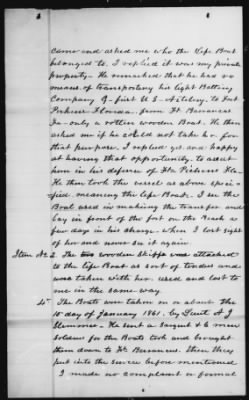 came and asked me who the Life Boat
belonged to. I replied it was my private
property. He remarked that he had no
means of transporting his light Battery
Company G - first U S Artillery, to Fort
Pickens Florida, from Ft Barrancas
only a rotten wooden Boat. He then
asked me if he could not take her for
that purpose. I replied yes and happy
at having that opportunity. to assist
him in his defence of Ft. Pickens Fla.
He then took the vessel as above speci-
fied meaning the Life Boat. I saw the
Boat used in making the transfer and
lay in front of the fort on the Beach a
few days in his charge when I lost sight
of her and never saw it again.
Item No. 2. The two wooden skiffs was attached
to the Life Boat as sort of tenders and
was taken with her. used and lost to
me in the same way
4" The Boats were taken on or about the
10 day of January 1861. by Lieut A J
Slemmer. He sent a Sargent & 6 men
soldiers for the Boats took and brought
them down to Ft Barrancas. then they
put into the service before mentioned
I made no complaint or formal